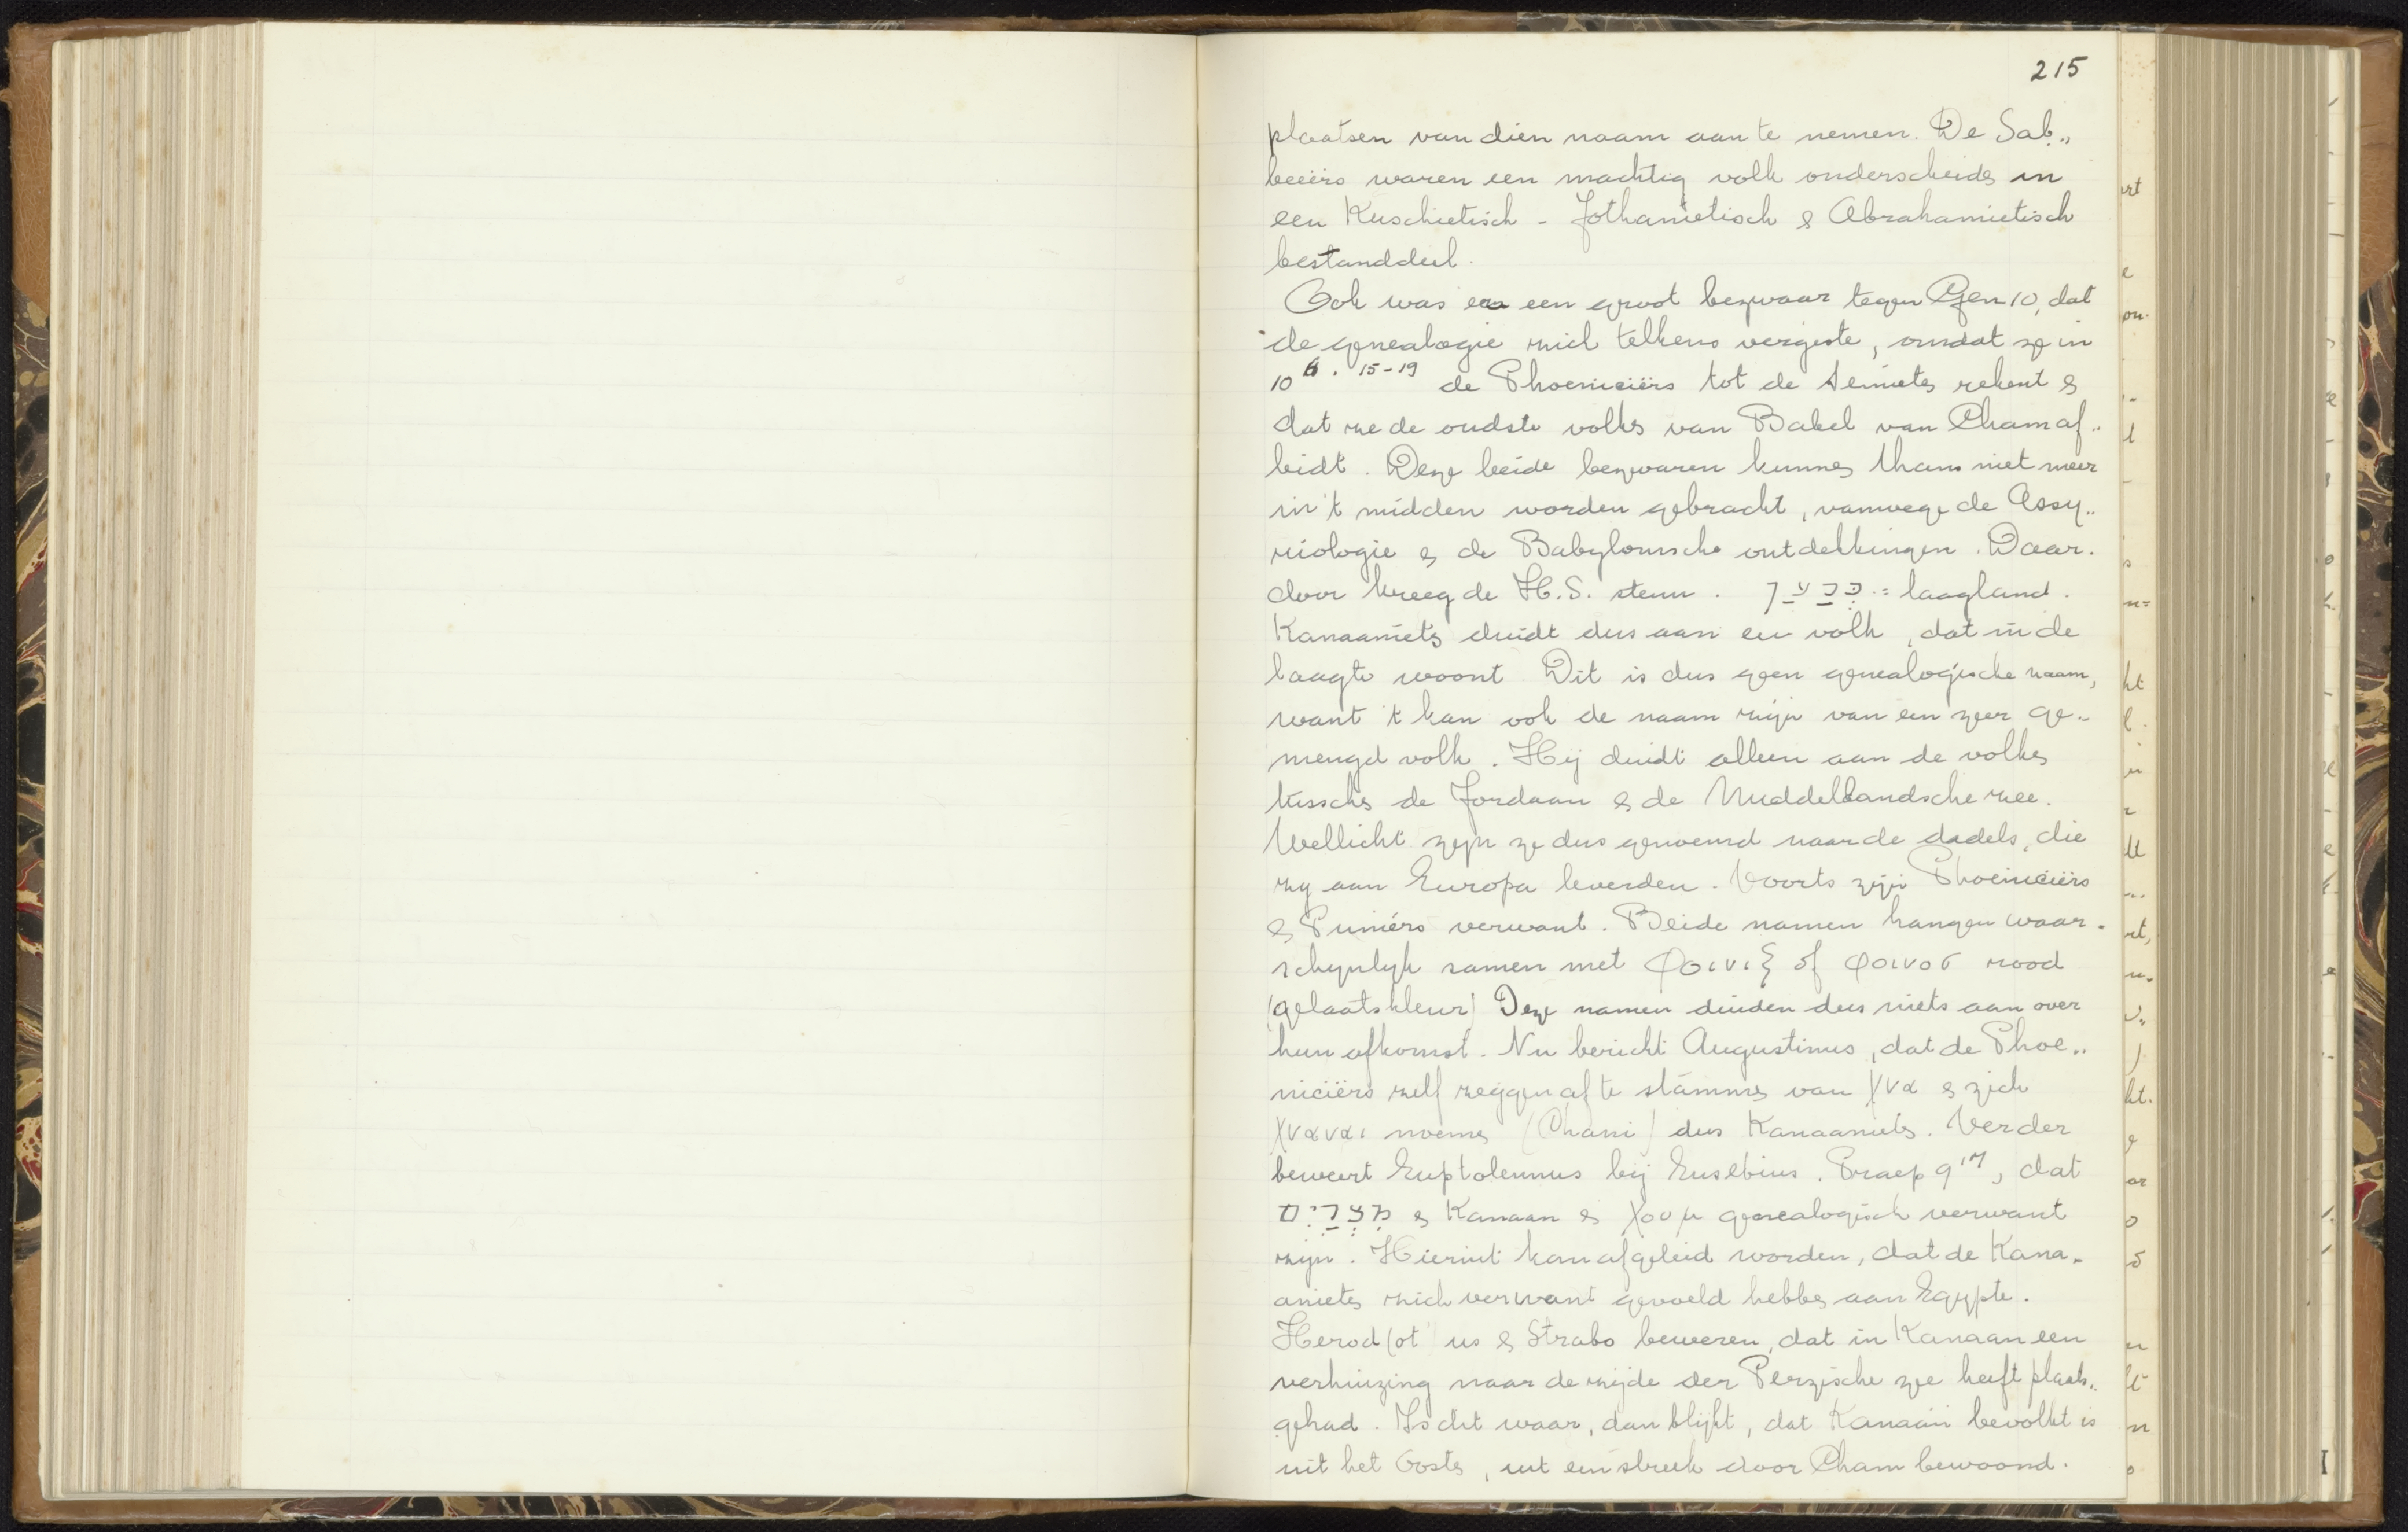 215
plaatsen van dien naam aan te nemen. De Sab„
beeërs waren een machtig volk onderscheiden in
een Kuschietisch - Jothanietisch & Abrahamietisch
bestanddeel.
Ook was er een groot bezwaar tegen Gen 10, dat
de genealogie zich telkens vergiste, omdat ze in
10 6. 15-19 de Phoeniciërs tot de Semieten rekent &
dat ze de oudste volken van Babel van Cham af„
leidt. Deze beide bezwaren kunnen thans niet meer
in 't midden worden gebracht, vanwege de Assy„
riologie & de Babylonische ontdekkingen. Daar-
door kreeg de H.S. steun. כְּנַעַן = laagland.
Kanaanieten duidt dus aan een volk, dat in de
laagte woont Dit is dus geen genealogische naam,
want 't kan ook de naam zijn van een zeer ge„
mengd volk. Hij duidt alleen aan de volken
tusschen de Jordaan & de Middellandsche zee.
Wellicht zijn ze dus genoemd naar de dadels, die
zij aan Europa leverden. Voorts zijn Phoeniciërs
& Puniërs verwant. Beide namen hangen waar-
schijnlijk samen met φοινιξ of φοινοσ rood
(gelaatskleur) Deze namen duiden dus niets aan over
hun afkomst. Nu bericht Augustinus, dat de Phoe„
niciërs zelf zeggen af te stammen van χνα & zich
χναναι noemen (Chani) dus Kanaanieten. Verder
beweert Euptolemus bij Eusebius. Praep 9 17, dat
מִצְרַיִם & Kanaan & χουμ genealogisch verwant
zijn. Hieruit kan afgeleid worden, dat de Kana-
anieten zich verwant gevoeld hebben aan Egypte.
Herod(ot) us & Strabo beweren, dat in Kanaan een
verhuizing naar de zijde der Perzische zee heeft plaats„
gehad. Is dit waar, dan blijft, dat Kanaän bevolkt is
uit het Oosten, uit een streek door Cham bewoond.